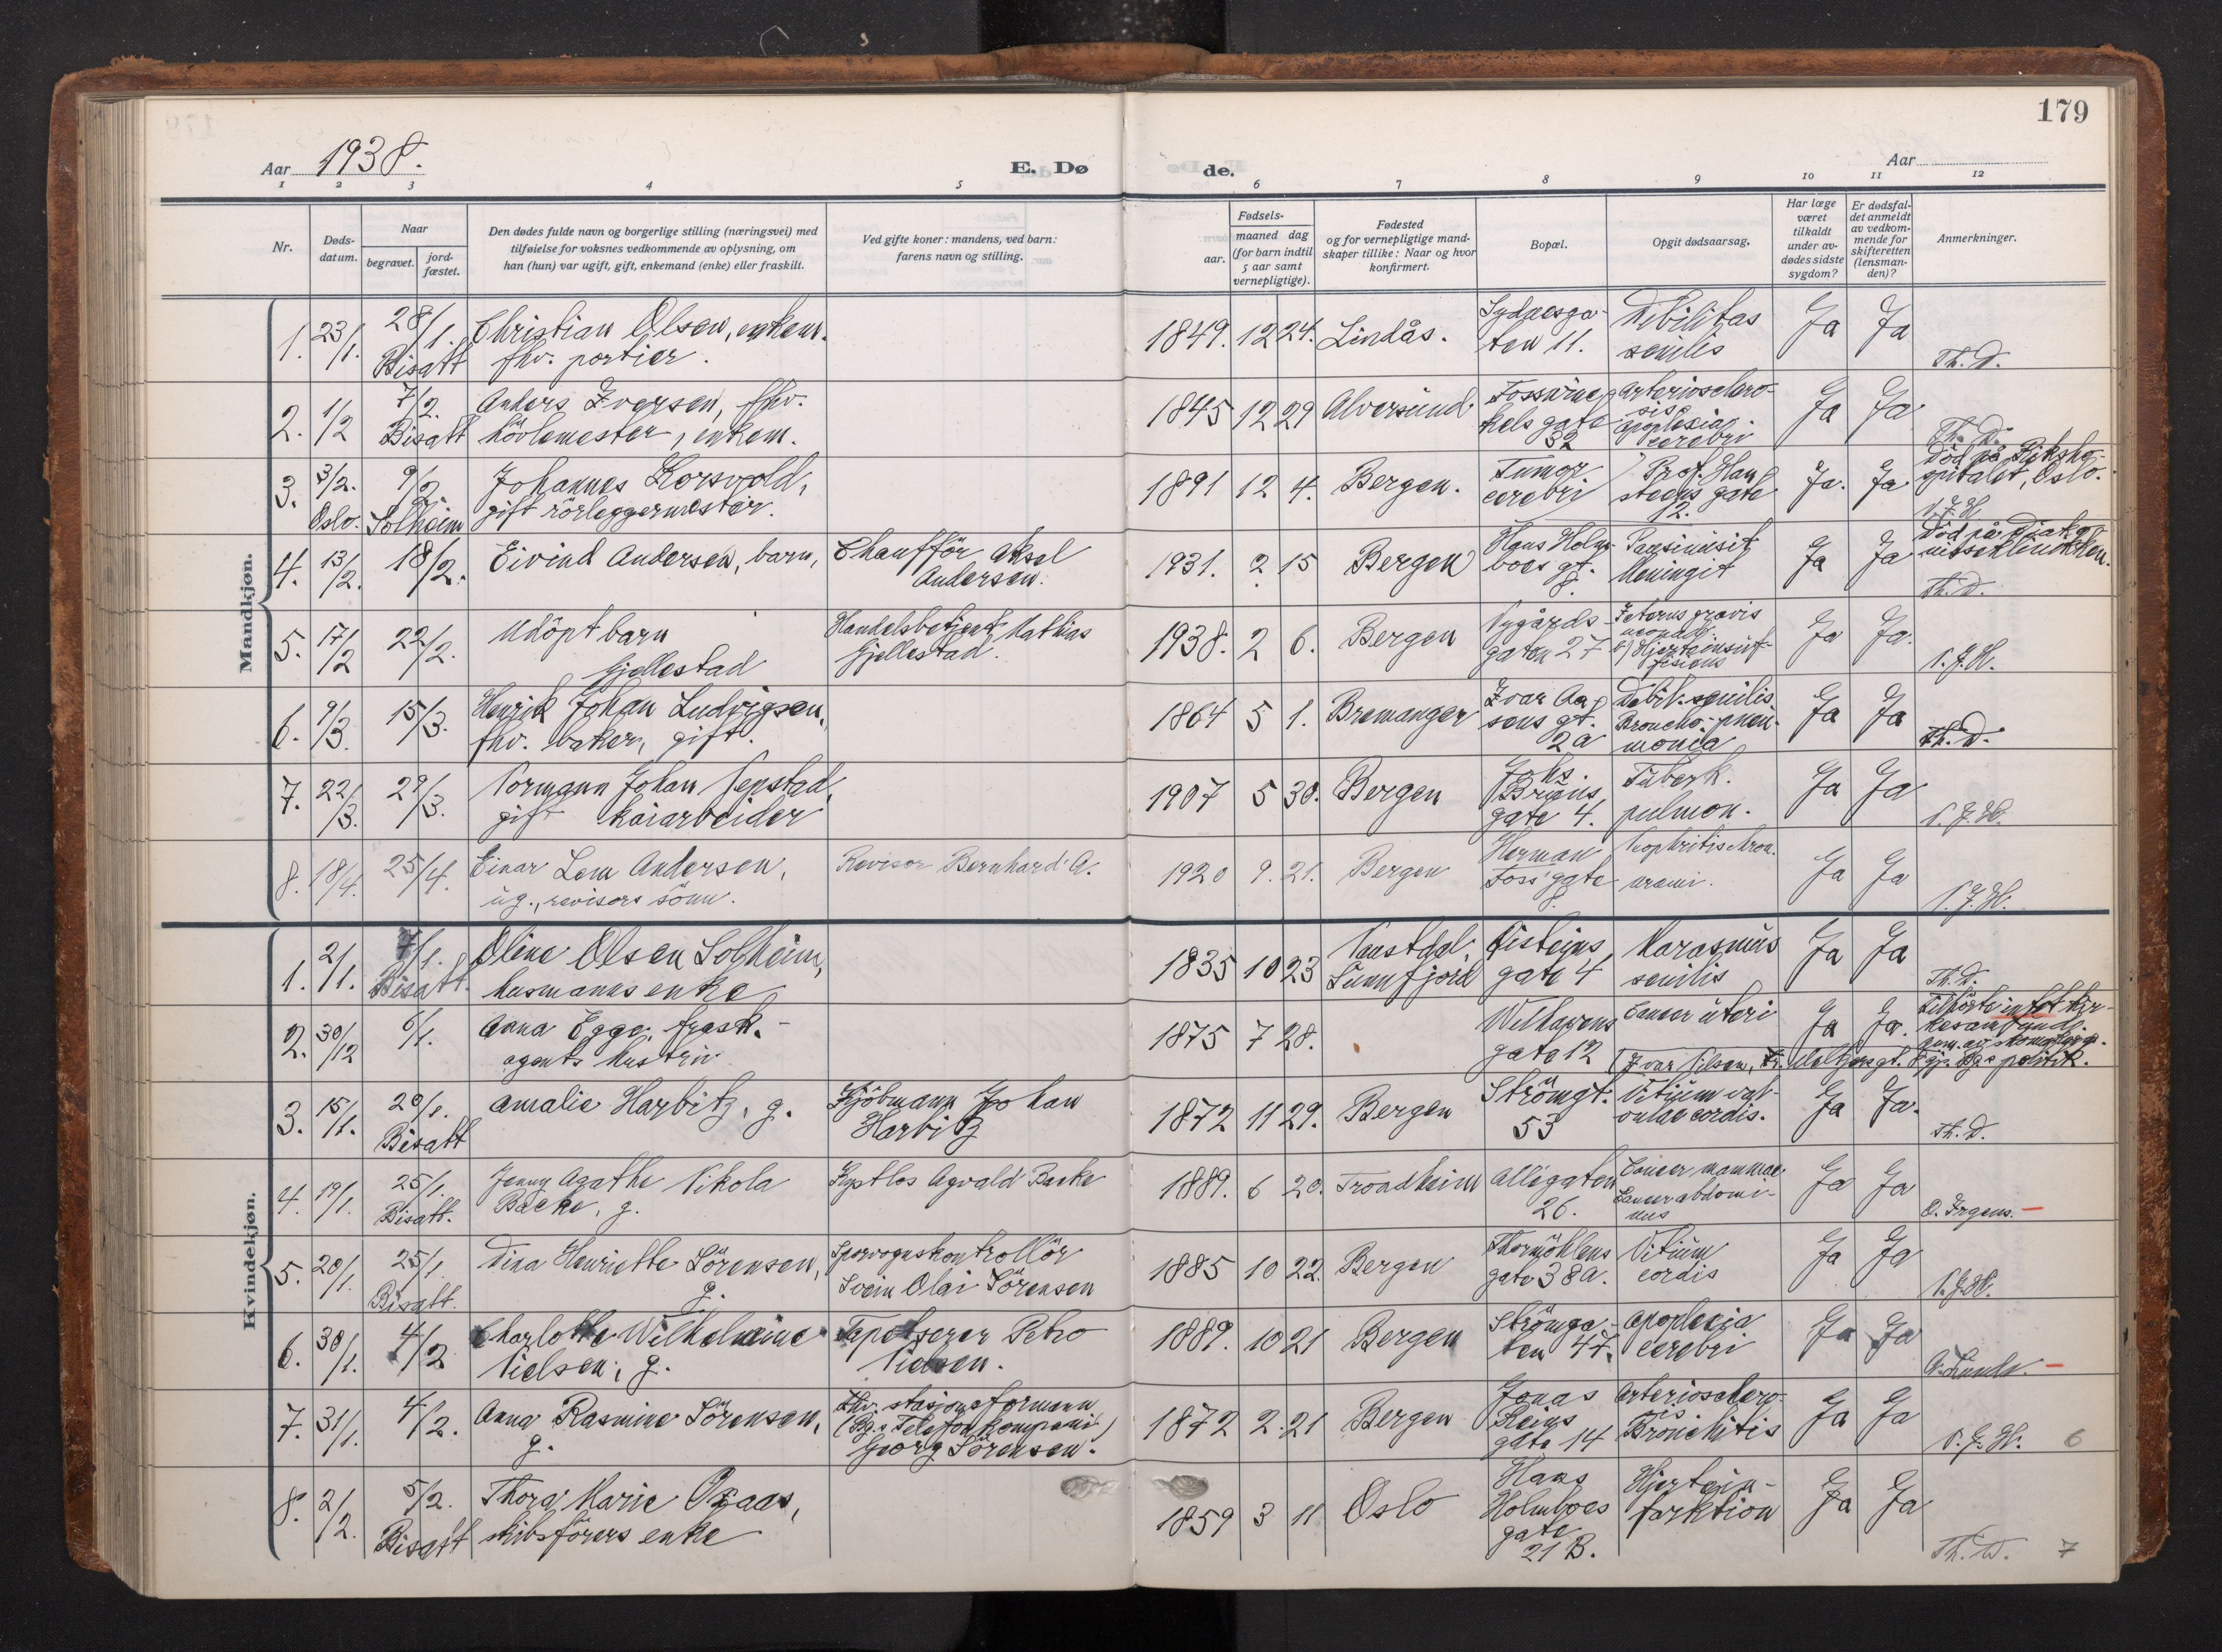 179
Aar 1938.
E. Døde.
Aar
1 2 3 4 5 6 7 8 9 10 11 12
Nr.
Døds-
datum.
Naar
begravet.
jord-
fæstet.
Den dødes fulde navn og borgerlige stilling (næringsvei) med
tilføielse for voksnes vedkommende av oplysning, om
han (hun) var ugift, gift, enkemand (enke) eller fraskilt.
Ved gifte koner: mandens, ved barn:
farens navn og stilling.
Fødsels-
aar.
maaned dag
(for barn indtil
5 aar samt
vernepligtige).
Fødested
og for vernepligtige mand-
skaper tillike: Naar og hvor
konfirmert.
Bopæl.
Opgit dødsaarsag.
Har læge
været
tilkaldt
under av-
dødes sidste
sygdom?
Er dødsfal-
det anmeldt
av vedkom-
mende for
skifteretten
(lensman-
den)?
Anmerkninger.
Mandkjøn.
1. 23/1. 28/1. Bisatt
Christian Olsen, enkem.
fhv. portier.
1849. 12 24. Lindås.
Sydnesga-
ten 11.
Debilitas
senilis
Ja Ja Th. D.
2. 1/2 7/2. Bisatt
Anders Iversen, fhv.
hövlemester, enkem.
1845 12 29 Alversund
Fosswinc-
kels gate
32
Arteriosclero-
sis
apoplexia
cerebri
Ja Ja Th. D.
3. 3/2. Oslo. 9/2 Solheim
Johannes Korsvold,
gift rörleggermester.
1891 12 4. Bergen.
Tumor
cerebri
Prof. Han-
steens gate
12.
Ja. Ja
Död på Riksho-
spitalet, Oslo.
4. 13/2. 18/2.
Eivind Andersen, barn,
Chaufför Aksel
Andersen.
1931. 2 15 Bergen
Hans Holm-
boes gt.
Meningit
Ja Ja
Död på Diako-
Th. D.
5. 17/2 22/2.
Udöpt barn
Gjellestad
Handelsbetjent Mathias
Gjellestad.
1938. 2 6. Bergen
Nygårds-
gaten 27
Icterus gravis
b) Hjerteinsuf-
Ja Ja.
6. 9/3. 15/3.
Henrik Johan Ludvigsen,
fhv. baker, gift.
1864 5 1. Bremanger
Ivar Aa-
sens gt.
2a
Debil. senilis
Broncho-pneu-
monia
Ja Ja Th. D.
7. 22/3. 29/3.
Normann Johan Nepstad,
gift kaiarbeider
1907 5 30. Bergen
Johs.
Bruns
gate 4.
Tuberk.
pulmon.
Ja Ja
8. 18/4. 25/4.
Einar Lem Andersen,
ug., revisors sönn.
Revisor Bernhard A.
1920 9. 21. Bergen
Herman
Foss' gate
8
Nephritis chron.
uremi.
Ja Ja
Kvindekjøn.
1. 2/1. 7/1. Bisatt.
Oline Olsen Solheim,
husmanns enke
1835 10 23
Naustdal,
Sunnfjord
Öisteins
gate 4
Marasmus
senilis
Ja Ja Th. D.
2. 30/12 6/1.
Anna Egge, frask.-
agents hustru
1875 7 28.
Welhavens
gate 12
Cancer uteri
Ja Ja.
Tilhörte intet kir-
kesamfund.
3. 15/1. 20/1. Bisatt
Amalie Harbitz, g.
Kjöbmann Johan
Harbitz
1872 11 29. Bergen
Strömgt.
53
Vitium val-
vulae cordis.
Ja Ja. Th. D.
4. 19/1. 25/1. Bisatt.
Jenny Agathe Nikola
Backe, g.
Agvald Backe
1889. 6 20. Trondheim
Allégaten
26.
Cancer mammae
Cancer abdomi-
nis
Ja Ja O. Irgens.
5. 20/1. 25/1. Bisatt.
Dina Henriette Sörensen,
g.
Sporvognskontrollör
Svein Olai Sörensen
1885 10 22. Bergen
Thormöhlens
gate 38a.
Vitium
cordis
Ja Ja
6. 30/1. 4/2
Charlotte Wilhelmine
Nielsen, g.
Tapetserer Petro
Nielsen.
1889. 10 21 Bergen
Strömga-
ten 47.
Apoplexia
cerebri
Ja Ja
7. 31/1. 4/2.
Anna Rasmine Sörensen,
g.
fhv. stasjonsformann
(Bg.s Telefonkompani)
Georg Sörensen.
1872 2. 21 Bergen
Jonas
Reins
gate 14
Arterioscklero-
sis
Bronchitis
Ja Ja 6
8. 2/2. 5/2. Bisatt
Thora Marie Opaas,
skibsförers enke
1859 3 11 Oslo
Hans
Holmboes
gate
21 B.
Hjertein-
farktion
Ja Ja Th. D. 7